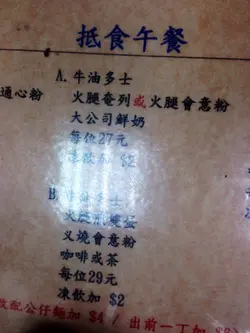 抵食午餐
A. 牛油多士
通心粉 火腿奄列或火腿會意粉
大公司鮮奶
每位27元
凍飲加 $2
B. 牛油多士
火腿煎雙蛋
叉燒會意粉
咖啡或茶
每位29元
凍飲加 $2
改配公仔麵加 $4 / 出前一丁加